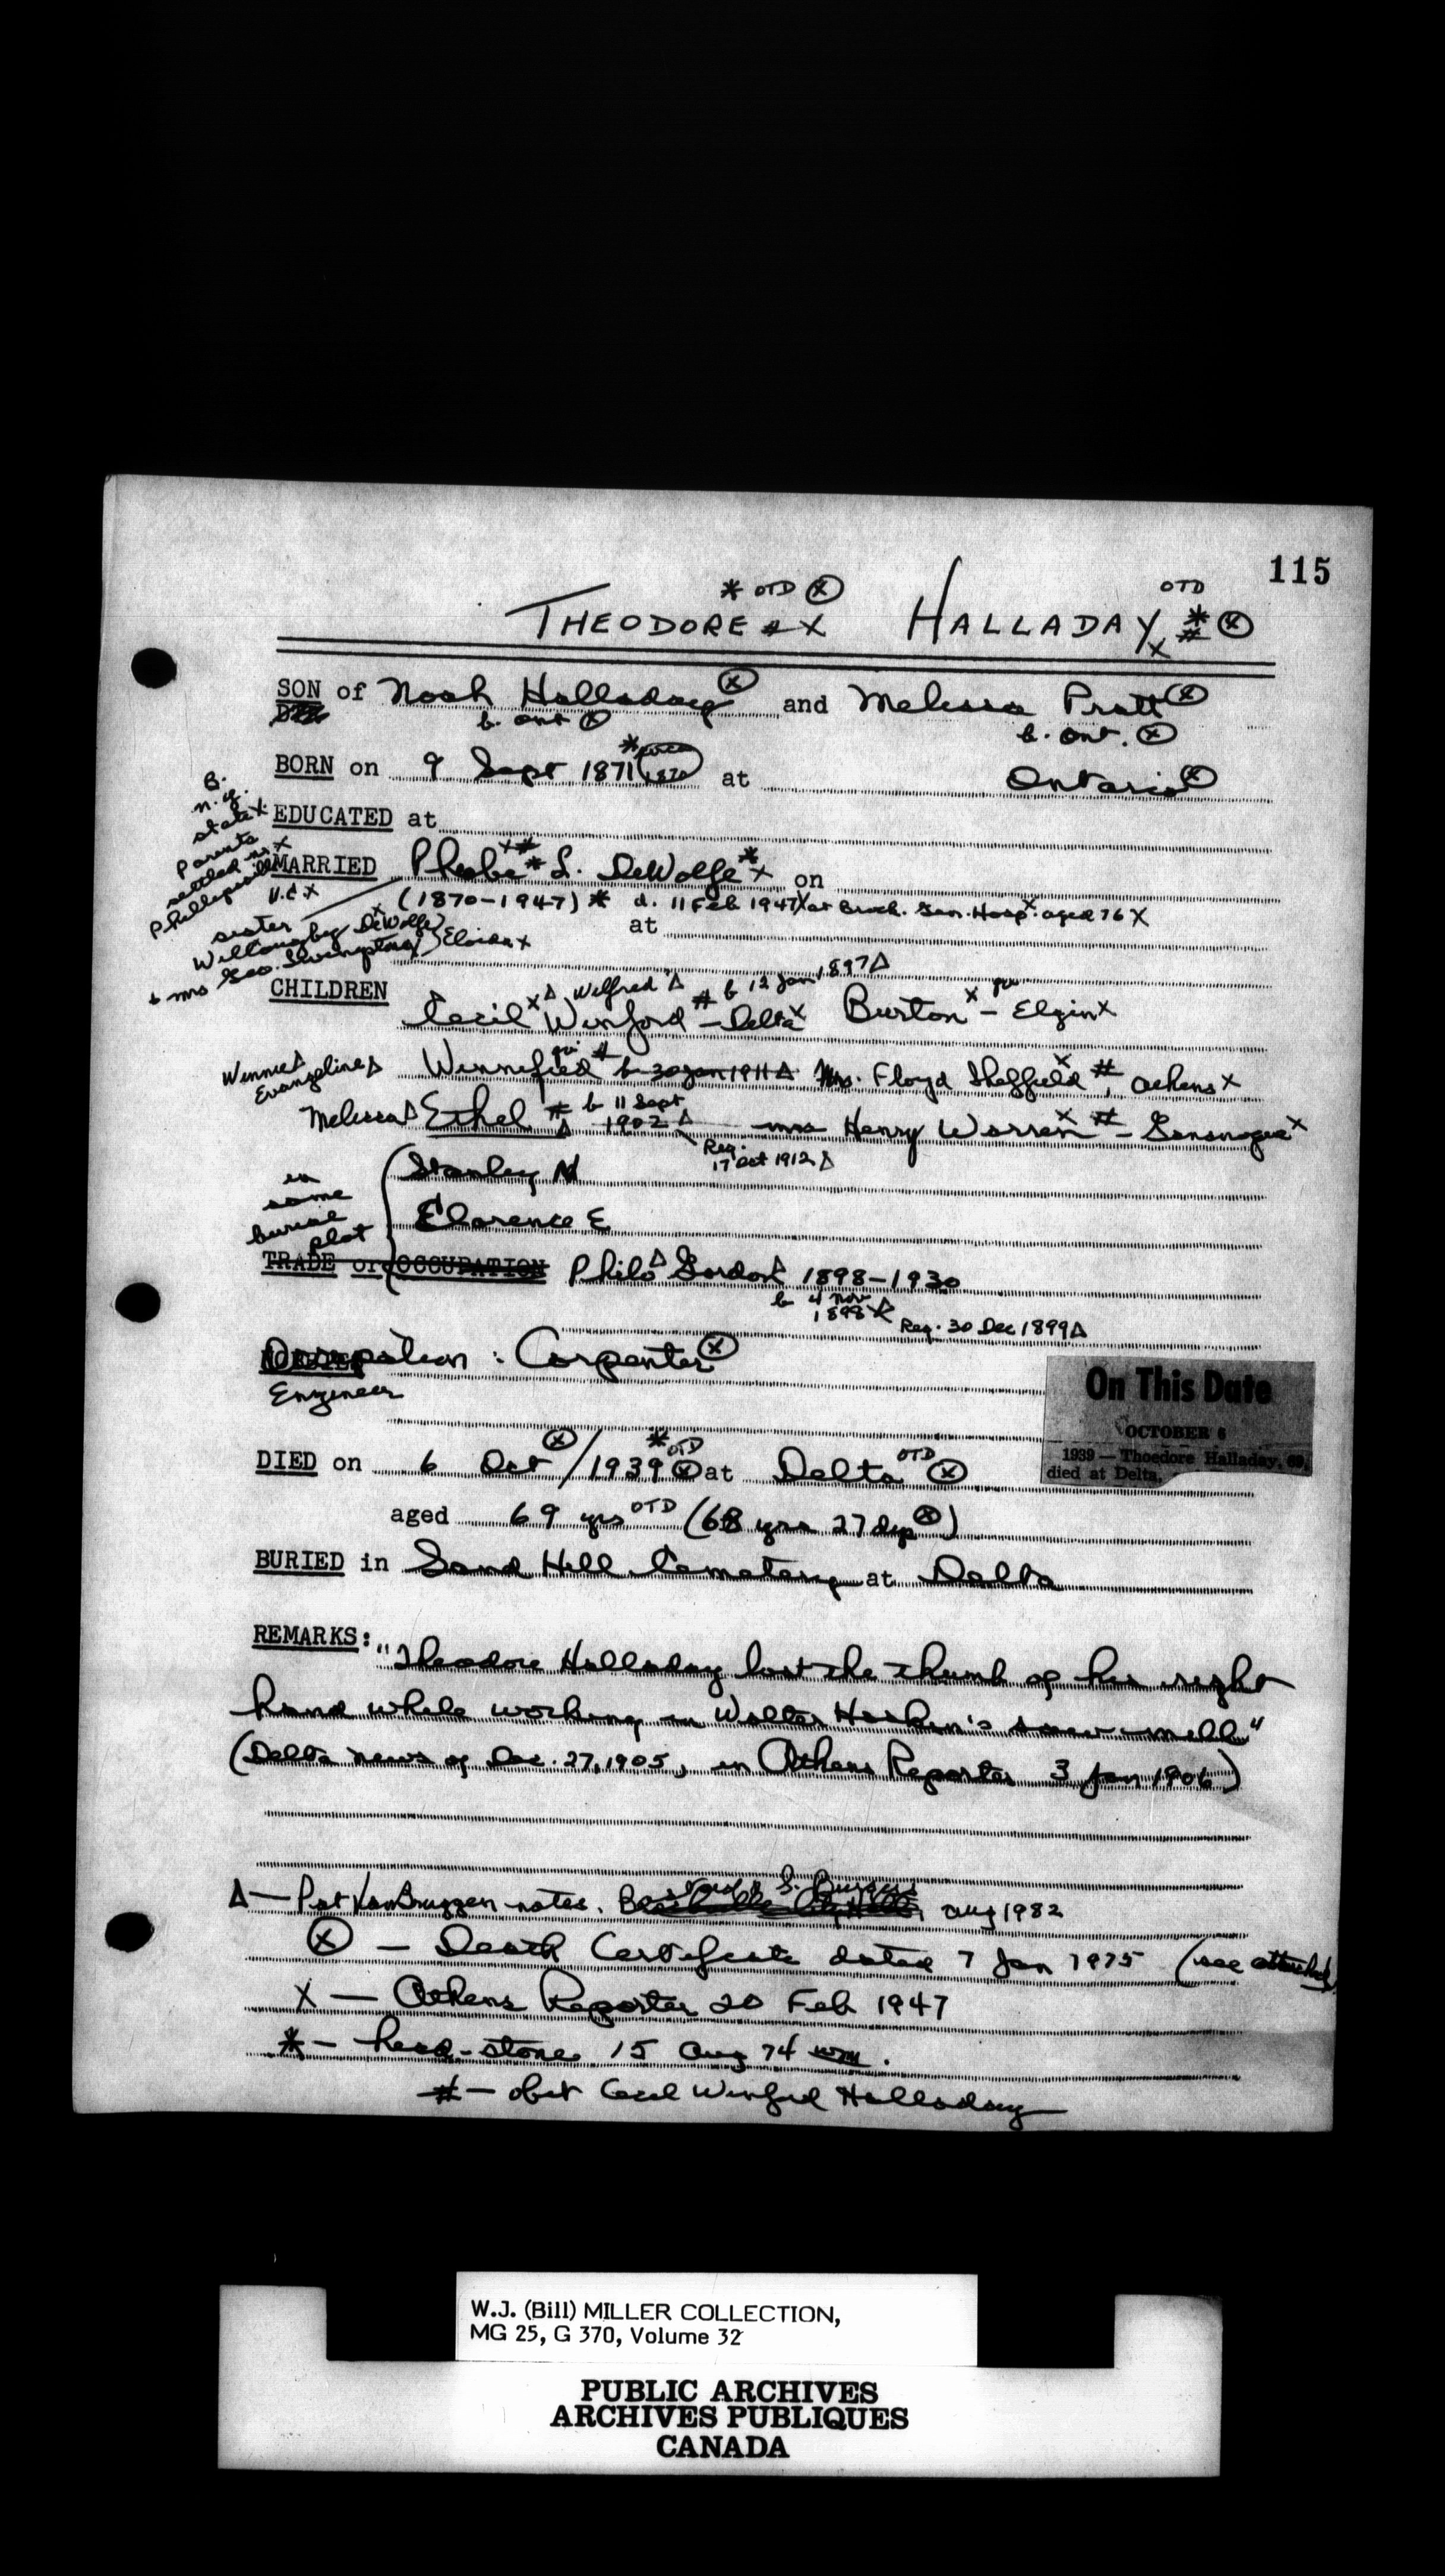 115
* OTD ⊗ OTD
THEODORE # X HALLADAY X * # ⊗
SON of Noah Halladay ⊗ and Melissa Pratt ⊗
b. Ont ⊗ b. Ont. ⊗
BORN on 9 Sept 1871 * 1870 at Ontario ⊗
B.
n.y.
state X
Parents
settled nr X
Phillipsville
U.C X
EDUCATED at
MARRIED Phebe X # * L. DeWolfe * X on
(1870-1947) * d. 11 Feb 1947 X at Brock. Gen. Hosp. X aged 76 X
at
sister
Willoughby DeWolfe X
& Mrs Geo. Livingston } Elgin X
CHILDREN
Wilfred Δ # b 12 Jan 1897 Δ
Cecil X Δ Winford - Delta X Burton X - Elgin X
Winnie Δ
Evangeline Δ
Winnefied # b 30 Jan 1911 Δ Mrs. Floyd Sheffield X #, Athens X
Melissa Δ Ethel # Δ b 11 Sept 1902 Δ - Mrs Henry Warren X # - Gananoque X
Reg. 17 Oct 1912 Δ
in
same
burial
plot
Stanley N
Clarence E
TRADE or OCCUPATION Philo Δ Gordon Δ 1898-1930
b 4 Nov 1898 Reg. 30 Dec 1899 Δ
Occupation : Carpenter ⊗
Engineer
On This Date
OCTOBER 6
1939 — Thoedore Halladay, 69,
died at Delta,
DIED on 6 Oct ⊗ / 1939 * OTD ⊗ at Delta OTD ⊗
aged 69 yrs OTD (68 yrs 27 dys ⊗)
BURIED in Sand Hill Cemetery at Delta
REMARKS: "Theodore Halladay lost the thumb of his right
hand while working in Walter Hasken's saw-mill"
(Delta news of Dec. 27, 1905, in Athens Reporter 3 Jan 1906)
Δ — Pat VanBruggen notes. Aug 1982
⊗ — Death Certificate dated 7 Jan 1975 (see attached)
X — Athens Reporter 20 Feb 1947
* — head-stone 15 Aug 74 WJM.
# — obit Cecil Winford Halladay
W.J. (Bill) MILLER COLLECTION,
MG 25, G 370, Volume 32
PUBLIC ARCHIVES
ARCHIVES PUBLIQUES
CANADA